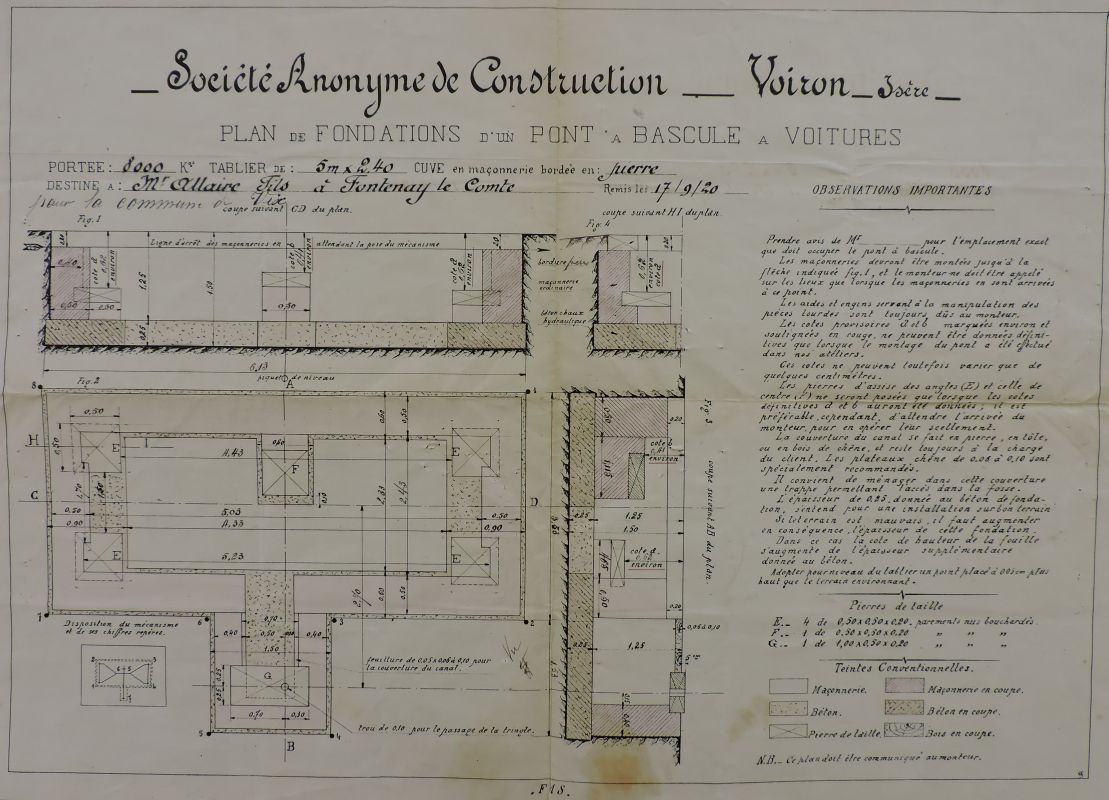 Société Anonyme de Construction __ Voiron _ Isère _
PLAN DE FONDATIONS D'UN PONT A BASCULE A VOITURES
PORTEE: 8000 Kgs TABLIER DE: 5m x 2,40 CUVE en maçonnerie bordée en: pierre
DESTINE A: Mr Allaire Fils à Fontenay le Comte Remis le: 17/9/20
pour la commune de Vix
coupe suivant CD du plan.
coupe suivant HI du plan.
Fig. 1
Fig. 4
Ligne d'arrêt des maçonneries en attendant la pose du mécanisme
bordure pierre
maçonnerie ordinaire
béton chaux hydraulique
1.25
1.50
0,50
0,50
0,25
6,13
piquet de niveau
Fig. 2
A
8
1
0,50
H
E
F
E
4,43
C
D
0,50
0,90
5,03
4,33
5,23
2.33
2.43
0,50
0,90
E
E
7
6
3
2
Disposition du mécanisme
et de ses chiffres repères.
0,40
0,50
0,40
1.50
G
0,70
0,30
5
B
4
feuillure de 0,05x0,05 à 0,10 pour
la couverture du canal.
trou de 0,10 pour le passage de la tringle.
Fig. 3
coupe suivant AB du plan.
0,20
cote b
0,41
environ
0.25
1.25
1.50
cote d
0,52
environ
0.20
0,05 à 0,10
0.25
1,25
OBSERVATIONS IMPORTANTES
Prendre avis de Mr ______ pour l'emplacement exact
que doit occuper le pont à bascule.
Les maçonneries devront être montées jusqu'à la
flêche indiquée fig. 1, et le monteur ne doit être appelé
sur les lieux que lorsque les maçonneries en sont arrivées
à ce point.
Les aides et engins servant à la manipulation des
pièces lourdes sont toujours dûs au monteur.
Les cotes provisoires d et b marquées environ et
soulignées en rouge, ne peuvent être données défini-
tives que lorsque le montage du pont a été effectué
dans nos atéliers.
Ces cotes ne peuvent toutefois varier que de
quelques centimètres.
Les pierres d'assise des angles (E) et celle de
centre (F) ne seront posées que lorsque les cotes
définitives d et b auront été données; il est
préférable, cependant, d'attendre l'arrivée du
monteur, pour en opérer leur scellement.
La couverture du canal se fait en pierre, en tôle,
ou en bois de chêne, et reste toujours à la charge
du client. Les plateaux chêne de 0.08 à 0,10 sont
spécialement recommandés.
Il convient de ménager dans cette couverture
une trappe permettant l'accès dans la fosse.
L'épaisseur de 0,25, donnée au béton de fonda-
tion, s'entend pour une installation sur bon terrain
Si le terrain est mauvais, il faut augmenter
en conséquence, l'épaisseur de cette fondation.
Dans ce cas la cote de hauteur de la fouille
s'augmente de l'épaisseur supplémentaire
donnée au béton.
Adopter pour niveau du tablier un point placé à 0,05 cm plus
haut que le terrain environnant.
Pierres de taille
E._ 4 de 0,50x0,50x0,20. parements nus bouchardés.
F._ 1 de 0.50x0,50x0,20 " " "
G._ 1 de 1,00x0,50x0,20 " " "
Teintes Conventionnelles.
Maçonnerie. Maçonnerie en coupe.
Béton. Béton en coupe.
Pierre de taille. Bois en coupe.
N.B._ Ce plan doit être communiqué au monteur.